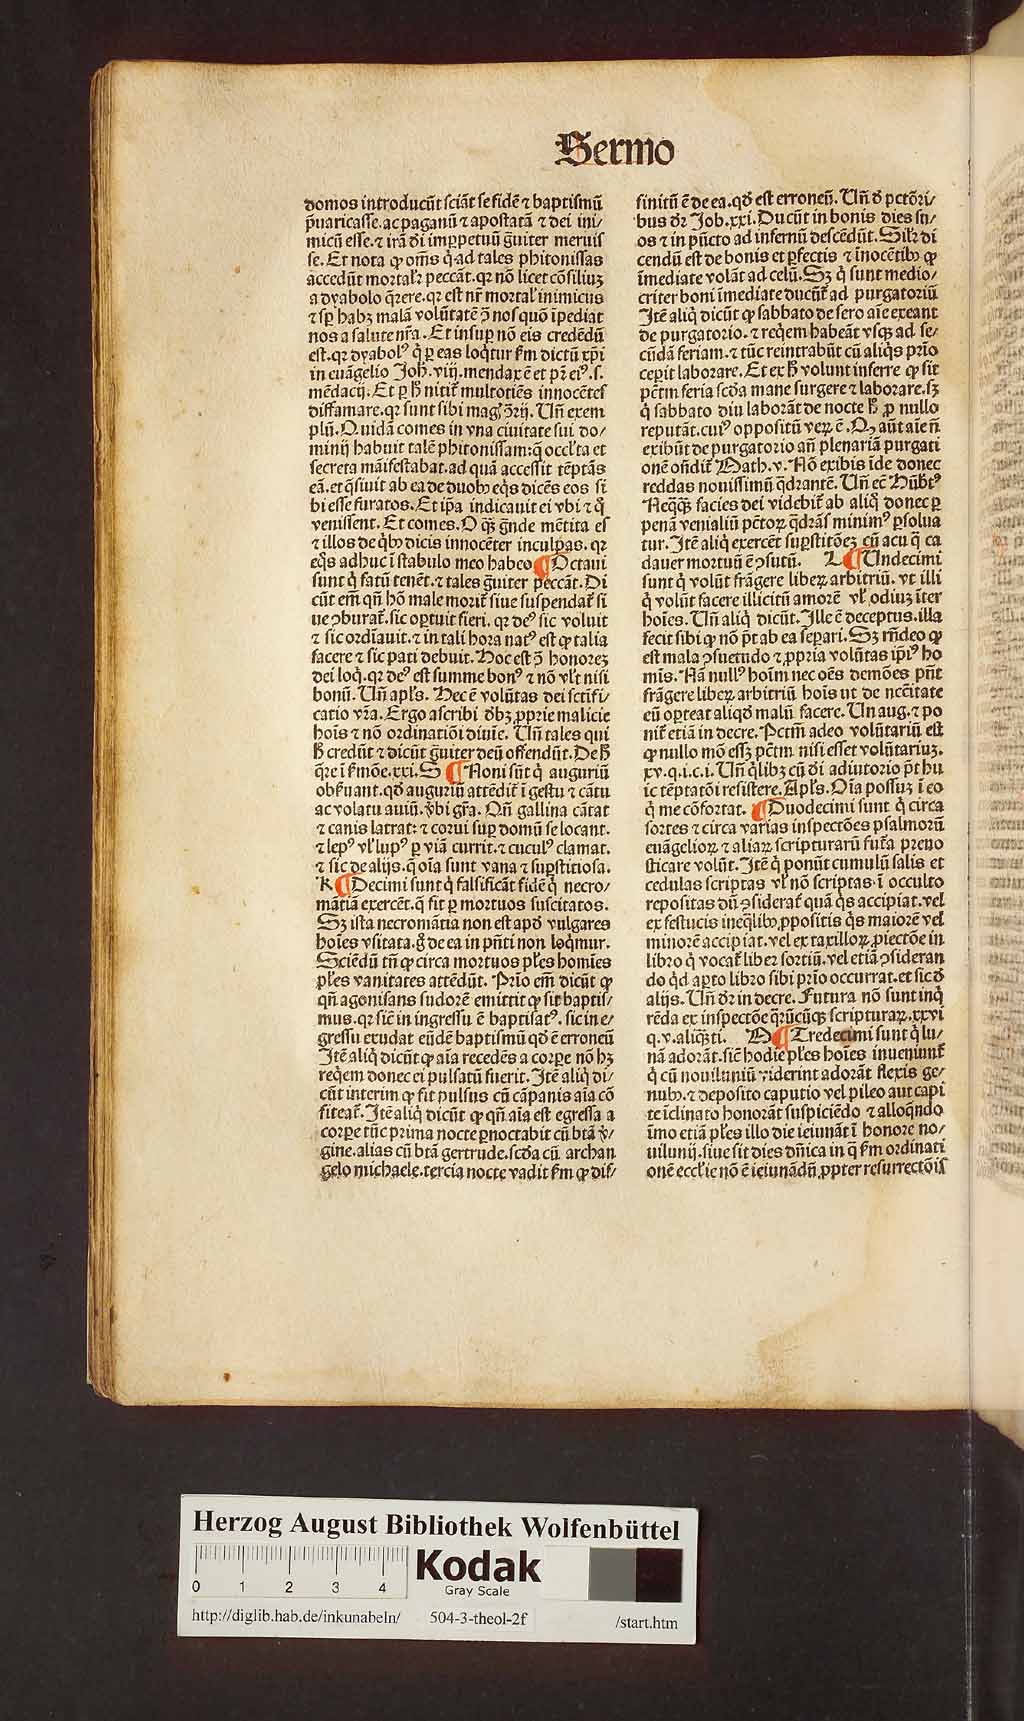 Sermo
domos introducūt sciāt se fidē ⁊ baptismū
p̄uaricasse. ac paganū ⁊ apostatā ⁊ dei ini/
micū esse. ⁊ irā dī imꝑpetuū ḡuiter meruis
se. Et nota ꝙ om̄s q̇ ad tales phitonissas
accedūt mortalr̄ peccāt. qr nō licet cōsiliuꝫ
a dyabolo q̄rere. qr est nr̄ mortal' inimicus
⁊ sꝑ habꝫ malā volūtatē ꝯ̄ nos quo īpediat
nos a salute nr̄a. Et insuꝑ nō eis credēdū
est. qr dyabolꝰ q̇ ꝑ eas loq̇tur ẜm dictū xp̄i
in euāgelio Joh̄. viij. mendax ē et pr̄ eiꝰ. s.
mēdacij. Et ꝑ h̄ nitit̄ multotiēs innocētes
diffamare. qr sunt sibi magꝭ ꝯ̄rij. Un̄ exem
plū. Quidā comes in vna ciuitate sui do/
minij habuit talē phitonissam: q̄ occl'ta et
secreta māifestabat. ad quā accessit tēptās
eā. et q̄siuit ab ea de duobꝫ eq̇s dicēs eos si
bi esse furatos. Et ip̄a indicauit ei vbi ⁊ q̇
venissent. Et comes. O qꝫ ḡnde mētita es
⁊ illos de q̇bꝫ dicis innocēter inculpas. qr
eq̇s adhuc ī stabulo meo habeo ¶ Octaui
sunt q̇ fatū tenēt. ⁊ tales ḡuiter peccāt. Di
cūt em̄ qn̄ hō male morit̄ siue suspendat̄ si
ue ꝯburat̄. sic oꝑtuit fieri. qr deꝰ sic voluit
⁊ sic ordīauit. ⁊ in tali hora natꝰ est ꝙ talia
facere ⁊ sic pati debuit. Hoc est ꝯ̄ honoreꝫ
dei loq̇. qr deꝰ est summe bonꝰ ⁊ nō vl't nisi
bonū. Un̄ apl's. Hec ē volūtas dei sctīfi/
catio vr̄a. Ergo ascribi dꝫ ꝓprie malicie
hoīs ⁊ nō ordinatiōi diuīe. Un̄ tales qui
h̄ credūt ⁊ dicūt ḡuiter deū offendūt. De h̄
q̄re ī ẜmōe. xxi. S ¶ Noni sūt q̇ auguriū
obẜuant. qđ auguriū attēdit̄ ī gestu ⁊ cātu
ac volatu auiū. v̇bi gr̄a. Qn̄ gallina cātat
⁊ canis latrat: ⁊ corui suꝑ domū se locant.
⁊ lepꝰ vl' lupꝰ ꝑ viā currit. ⁊ cuculꝰ clamat.
⁊ sic de alijs. q̄ oīa sunt vana ⁊ suꝑstitiosa.
K ¶ Decimi sunt q̇ falsificāt fidē q̇ necro/
mātiā exercēt. q̄ fit ꝑ mortuos suscitatos.
Sꝫ ista necromātia non est apđ vulgares
hoīes vsitata. g̊ de ea in pn̄ti non loq̇mur.
Sciēdū tn̄ ꝙ circa mortuos pl'es homīes
pl'es vanitates attēdūt. Prīo em̄ dicūt ꝙ
qn̄ agonisans sudorē emittit ꝙ sit baptis/
mus. qr siē in ingressu ē baptisatꝰ. sic in e/
gressu exudat eūdē baptismū qđ ē erroneū
Itē aliq̇ dicūt ꝙ aīa recedēs a corꝑe nō hꝫ
req̇em donec ei pulsatū fuerit. Itē aliq̇ di/
cūt interim ꝙ fit pulsus cū cāpanis aīa cō
fiteat̄. Itē aliq̇ dicūt ꝙ qn̄ aīa est egressa a
corꝑe tūc prima nocte ꝑnoctabit cū btā v̇/
gine. alias cū btā gertrude. scđa cū archan
gelo michaele. tercia nocte vadit ẜm ꝙ dif/
finitū ē de ea. qđ est erroneū. Un̄ đ pctōri/
bus dr̄ Job. xxi. Ducūt in bonis dies su/
os ⁊ in pūcto ad infernū descēdūt. Silr̄ di
cendū est de bonis et ꝑfectis ⁊ īnocētibꝫ ꝙ
īmediate volāt ad celū. Sꝫ q̇ sunt medio/
criter boni īmediate ducūt̄ ad purgatoriū
Itē aliq̇ dicūt ꝙ sabbato de sero aīe exeant
de purgatorio. ⁊ req̇em habeāt vsqꝫ ad se/
cūdā feriam. ⁊ tūc reintrabūt cū aliq̇s prīo
ceꝑit laborare. Et ex h̄ volunt inferre ꝙ sit
pctm̄ feria scđa mane surgere ⁊ laborare. sꝫ
q̇ sabbato diu laborāt de nocte h̄ ꝓ nullo
reputāt. cuiꝰ oppositū veꝝ ē. Qꝫ aūt aīe n̄
exibūt de purgatorio an̄ plenariā purgati
onē on̄dit̄ Math. v. Nō exibis īde donec
reddas nouissimū q̇drantē. Un̄ ec̄ Hūb̄tꝰ
Neqꝫqꝫ facies dei videbit̄ ab aliq̇ donec ꝑ
penā venialiū pctōꝝ q̇drās minimꝰ ꝑsolua
tur. Itē aliq̇ exercēt suꝑstitōeꝫ cū acu q̄ ca
dauer mortuū ē ꝯsutū. L ¶ Undecimi
sunt q̇ volūt frāgere libeꝝ arbitriū. vt illi
q̇ volūt facere illicitū amorē vl' odiuꝫ īter
hoīes. Un̄ aliq̇ dicūt. Ille ē deceptus. illa
fecit sibi ꝙ nō p̄t ab ea seꝑari. Sꝫ rn̄deo ꝙ
est mala ꝯsuetudo ⁊ ꝓpria volūtas ip̄iꝰ ho
mīs. Nā nullꝰ hoīm nec oēs demōes pn̄t
frāgere libeꝝ arbitriū hoīs ut de ncc̄itate
eū oꝑteat aliqđ malū facere. Un aug. ⁊ po
nit̄ etiā in decre. Pctm̄ adeo volūtariū est
ꝙ nullo mō essꝫ pctm̄ nisi esset volūtariuꝫ.
xv. q. i. c. i. Un̄ q̇libꝫ cū dī adiutorio p̄t hu
īc tēptatōi resistere. Apl's. Oīa possuꝫ ī eo
q̇ me cōfortat. ¶ Duodecimi sunt q̇ circa
sortes ⁊ circa varias inspectōes psalmorū
euāgelioꝝ ⁊ aliaꝝ scripturarū futa̅ preno
sticare volūt. Itē q̇ ponūt cumulū salis et
cedulas scriptas vl' nō scriptas. ī occulto
repositas dū ꝯsiderat̄ quā q̇s accipiat. vel
ex festucis ineq̄libꝫ ꝓpositis q̇s maiorē vel
minorē accipiat. vel ex taxilloꝝ ꝓiectōe in
libro q̇ vocat̄ liber sortiū. vel etiā ꝯsideran
do q̇d aꝑto libro sibi prīo occurrat. et sic đ
alijs. Un̄ dr̄ in decre. Futura nō sunt inq̇
rēda ex inspectōe q̄rūcūqꝫ scripturaꝝ. xxvi
q. v. aliq̄ti. M ¶ Tredecimi sunt q̇ lu/
nā adorāt. siē hodie pl'es hoīes inueniunt̄
q̇ cū nouiluniū viderint adorāt flexis ge/
nubꝫ. ⁊ deposito caputio vel pileo aut capi
te īclinato honorāt suspiciēdo ⁊ alloq̄ndo
īmo etiā pl'es illo die ieiunāt ī honore no/
uilunij. siue sit dies dn̄ica in q̄ ẜm ordinati
onē eccl'ie nō ē ieiunādū ꝓpter resurrectōis
Herzog August Bibliothek Wolfenbüttel
0 1 2 3 4
Kodak
Gray Scale
http://diglib.hab.de/inkunabeln/ 504-3-theol-2f /start.htm